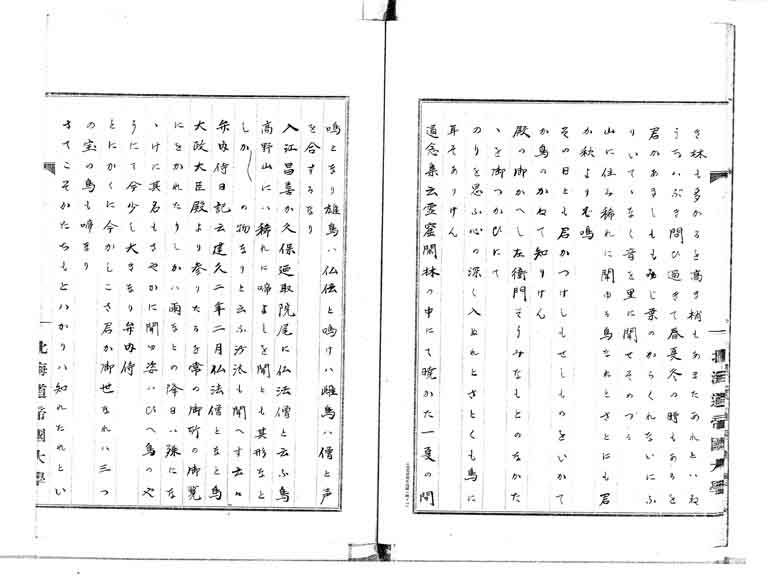 き林も多かるを高き梢もあまたあれといね
うちいぶき問ひ過きて春夏冬の時もあるを
君かあましももみじ葉のからくれないにふ
りいてゝなく音を里に聞せそのつら
山に住み稀れに聞ゆる鳥なれとさとにも君
か秋よりそ鳴
その日とも君かつけしもせしものをいかて
か鳥のかねて知りけん
殿の御かへし左衛門そうみなもとのなかた
ゝを御つかひにて
のりを思ふ心の深く入ぬれとさとくも鳥に
耳そありけん
道念集云霊窟閑林の中にて暁かた一夏の間
北海道帝國大學
鳴となり雄鳥ハ仏法と鳴けハ雌鳥ハ僧と声
を合するなり
入江昌喜か久保廼取院尾に仏法僧と云ふ鳥
高野山にハ稀れに啼よしを聞とも其形なと
しか の物なりと云ふ沙汰も聞へす云々
弁内侍日記云建久二年二月仏法僧となと鳥
大政大臣殿より参りたるを常の御所の御覧
にをかれたりしかハ雨なとの降日ハ殊にな
ゝけに其名もさやかに聞ゆ姿ハひへ鳥のや
うにて今少し大きなり弁内侍
とにかくに今かしこき君か御世なれハ三つ
の宝の鳥も啼なり
さてこそかたちもとハかりハ知れたれとい
北海道帝國大學